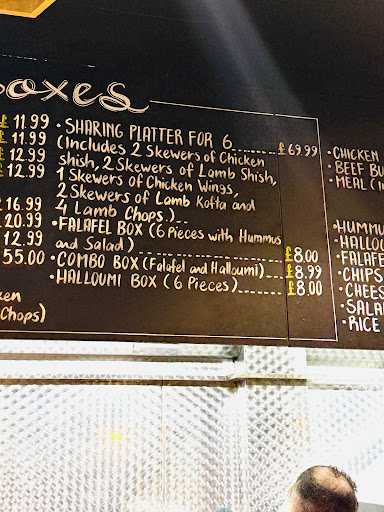 oxes
£ 11.99
£ 11.99
£ 12.99
£ 12.99
£ 16.99
£ 20.99
12.99
55.00
Chops)
• SHARING PLATTER FOR 6........£ 69.99
(Includes 2 Skewers of Chicken
shish, 2 Skewers of Lamb Shish,
1 Skewers of Chicken Wings,
2 Skewers of Lamb Kofta and
4 Lamb Chops.)..
• FALAFEL BOX (6 Pieces with Hummus
and Salad)........£8.00
• COMBO BOX (Falafel and Halloumi)....£8.99
• HALLOUMI BOX ( 6 Pieces)........£8.00
• CHICKEN
• BEEF BU
• MEAL (
HUMMU
• HALLOU
• FALAFE
• CHIPS
• CHEES
• SALA
• RICE